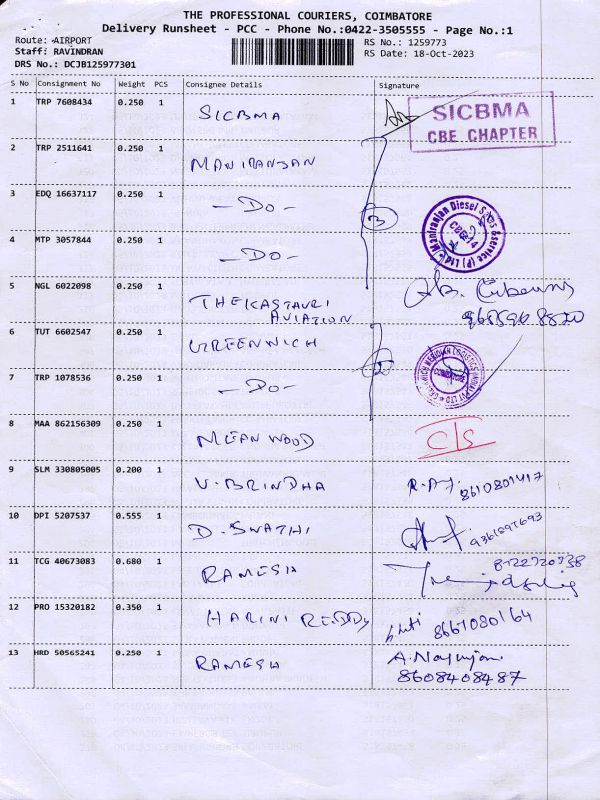 THE PROFESSIONAL COURIERS, COIMBATORE
Delivery Runsheet - PCC - Phone No.:0422-3505555 - Page No.:1
Route: AIRPORT
RS No.: 1259773
Staff: RAVINDRAN
RS Date: 18-Oct-2023
DRS No.: DCJB125977301
S No Consignment No Weight PCS Consignee Details Signature
1 TRP 7608434 0.250 1 SICBMA
SICBMA
CBE CHAPTER
2 TRP 2511641 0.250 1 MANIRANJAN
3 EDQ 16637117 0.250 1 -DO-
3
Maniranjan Diesel Sales &service (P) Ltd.
4 MTP 3057844 0.250 1 -DO-
5 NGL 6022098 0.250 1 THEKASTAURI
AVIATION
6 TUT 6602547 0.250 1 GREENWICH
GREENWICH MERIDIAN LOGISTICS (INDIA) PVT LTD
COIMBATORE
7 TRP 1078536 0.250 1 -DO-
8 MAA 862156309 0.250 1 MEAN WOOD C/S
9 SLM 330805005 0.200 1 V. BRINDHA 8610801417
10 DPI 5207537 0.555 1 D. SWATHI 9361897693
11 TCG 40673083 0.680 1 RAMESH
12 PRO 15320182 0.350 1 HARINI REDDY 8667080164
13 HRD 50565241 0.250 1 RAMESH
8608408487